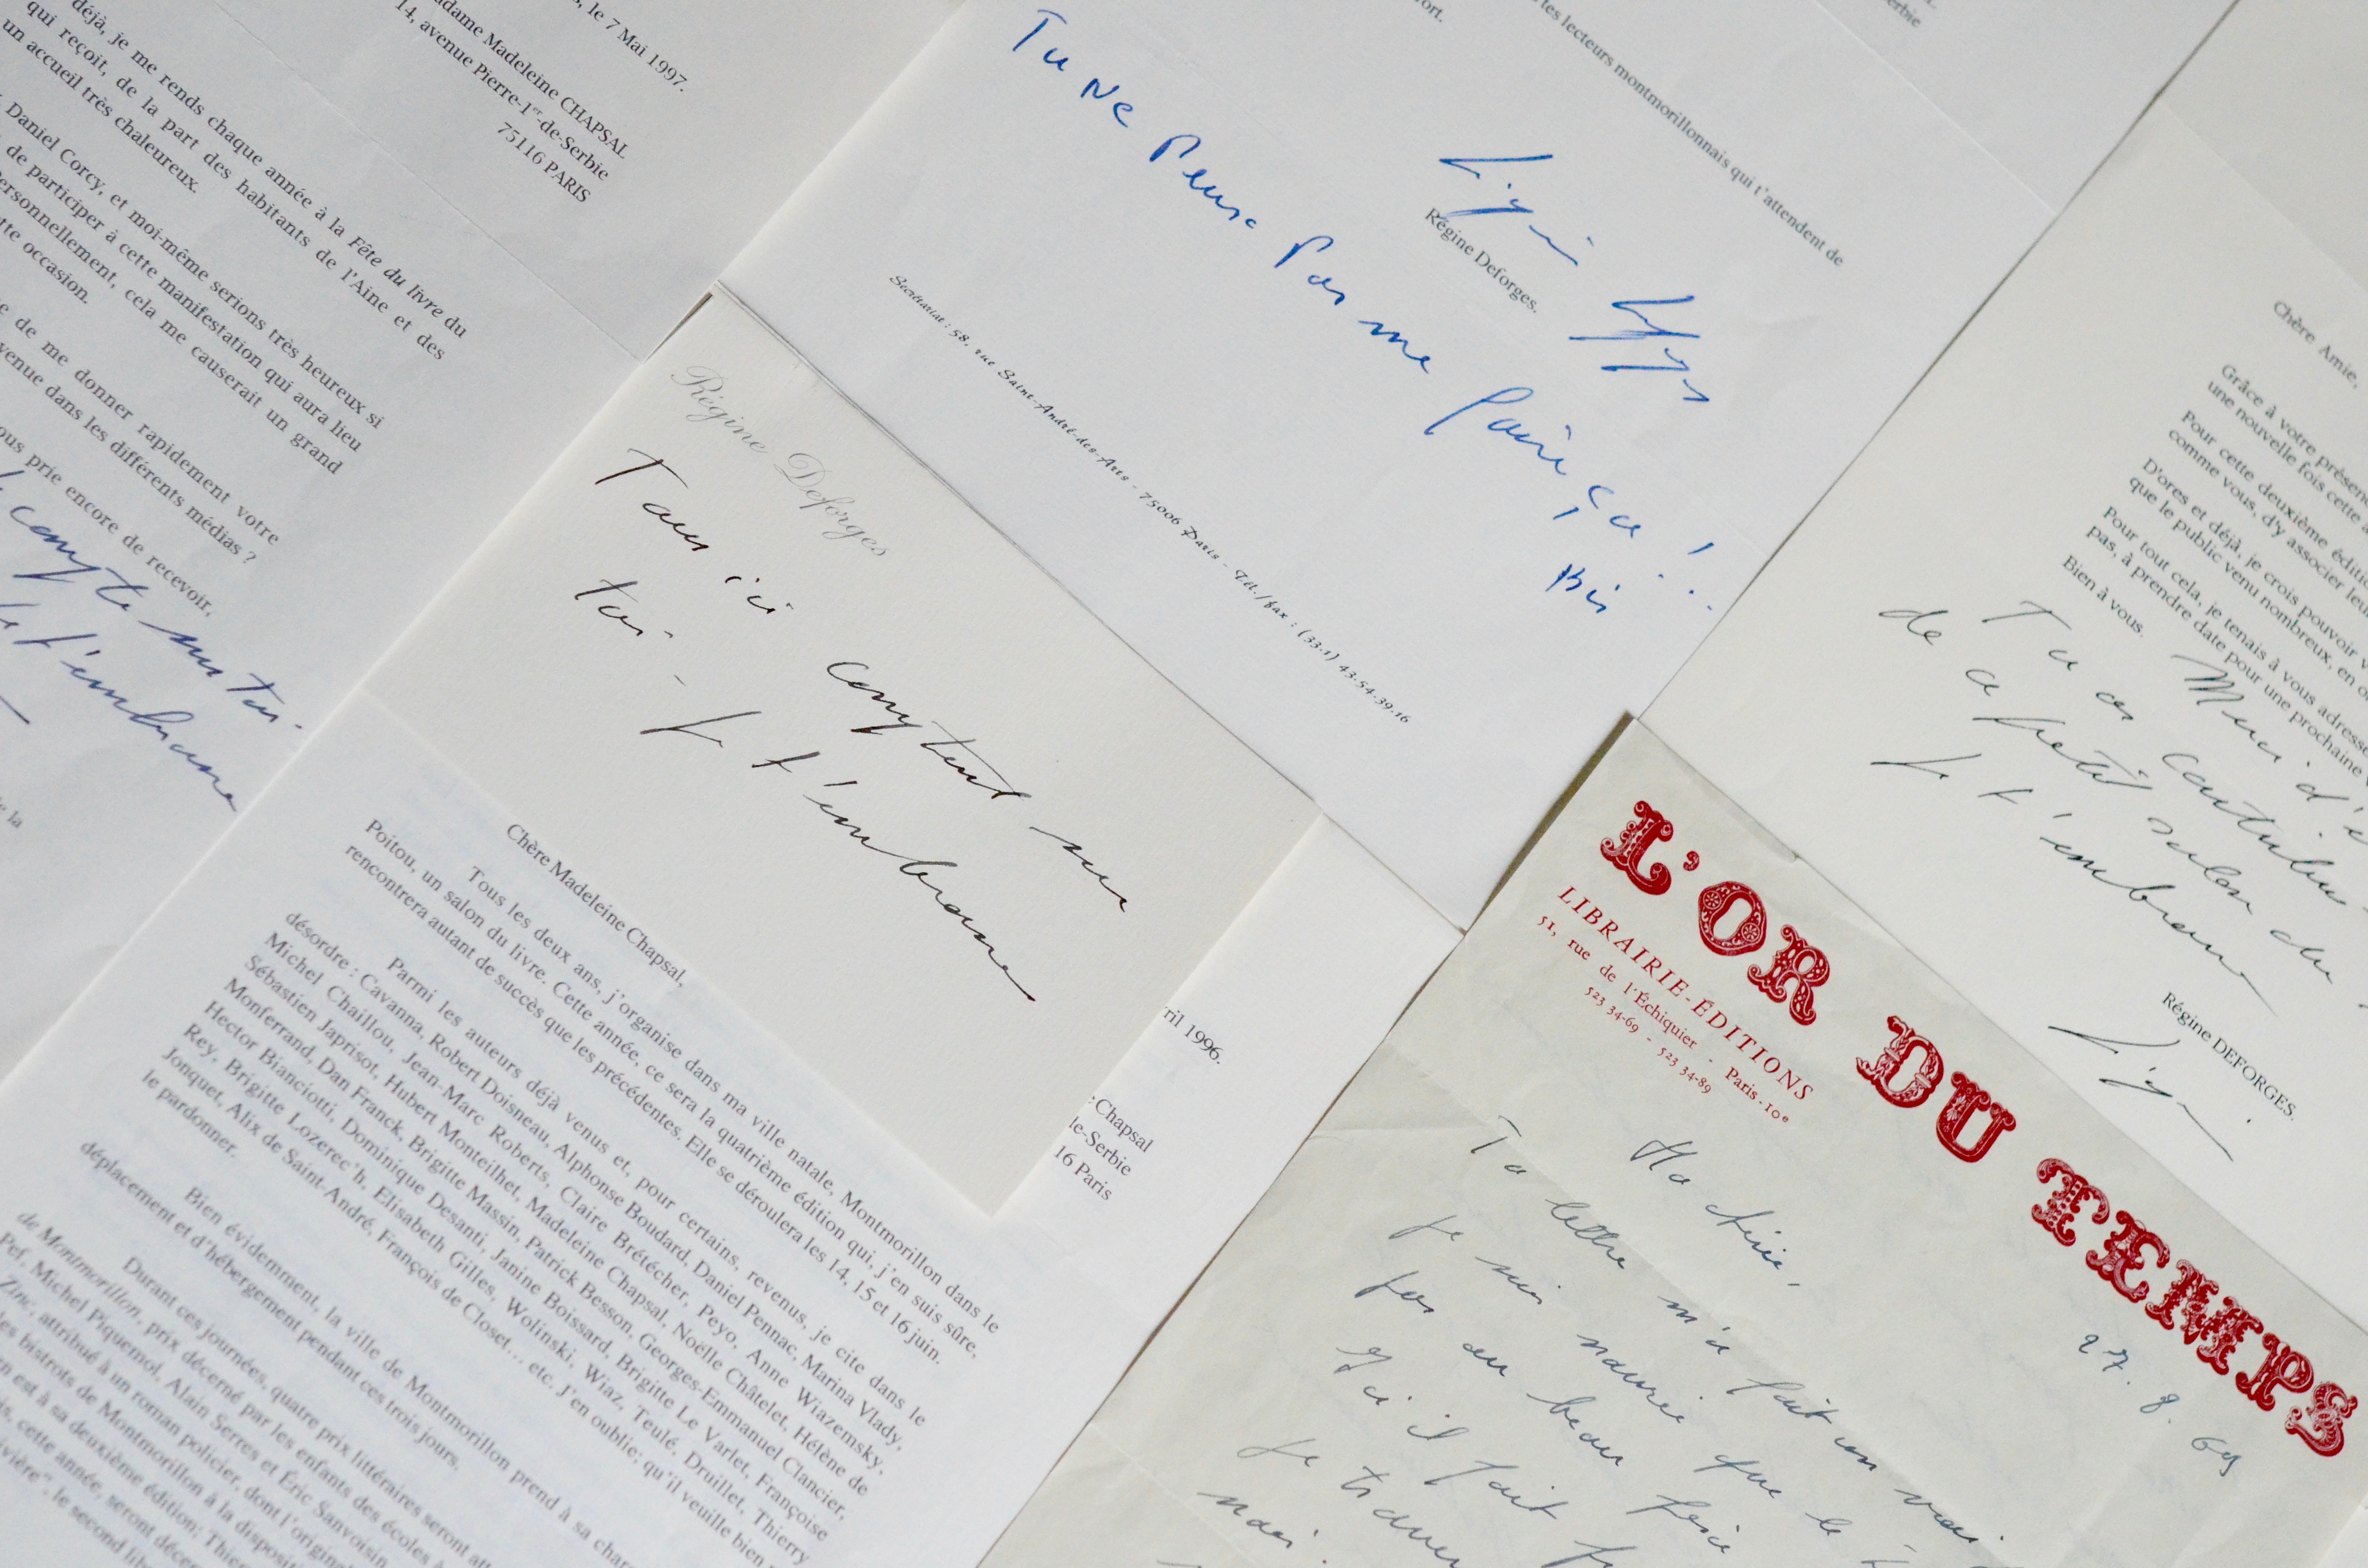 , le 7 Mai 1997.
adame Madeleine CHAPSAL
14, avenue Pierre-1er-de-Serbie
75116 PARIS
déjà, je me rends chaque année à la Fête du livre du
qui reçoit, de la part des habitants de l'Aine et des
un accueil très chaleureux.
Daniel Corcy, et moi-même serions très heureux si
de participer à cette manifestation qui aura lieu
ersonnellement, cela me causerait un grand
tte occasion.
de me donner rapidement votre
venue dans les différents médias ?
ous prie encore de recevoir,
compte sur toi.
t'embrasse
e la
ort.
les lecteurs montmorillonnais qui t'attendent de
Régine Deforges.
Tu ne peux pas me faire ça !
Bis
Secrétariat : 58, rue Saint-André-des-Arts - 75006 Paris - Tél./fax : (33.1) 43.54.39.16
erbie
Régine Deforges
Tous ici comptent sur
toi - Je t'embrasse
ril 1996.
Chapsal
le-Serbie
16 Paris
Chère Madeleine Chapsal,
Tous les deux ans, j'organise dans ma ville natale, Montmorillon dans le
Poitou, un salon du livre. Cette année, ce sera la quatrième édition qui, j'en suis sûre,
rencontrera autant de succès que les précédentes. Elle se déroulera les 14, 15 et 16 juin.
Parmi les auteurs déjà venus et, pour certains, revenus, je cite dans le
désordre : Cavanna, Robert Doisneau, Alphonse Boudard, Daniel Pennac, Marina Vlady,
Michel Chaillou, Jean-Marc Roberts, Claire Brétécher, Peyo, Anne Wiazemsky,
Sébastien Japrisot, Hubert Monteilhet, Madeleine Chapsal, Noëlle Châtelet, Hélène de
Monferrand, Dan Franck, Brigitte Massin, Patrick Besson, Georges-Emmanuel Clancier,
Hector Bianciotti, Dominique Desanti, Janine Boissard, Brigitte Le Varlet, Françoise
Rey, Brigitte Lozerec'h, Elisabeth Gilles, Wolinski, Wiaz, Teulé, Druillet, Thierry
Jonquet, Alix de Saint-André, François de Closet... etc. J'en oublie; qu'il veuille bien
le pardonner.
Bien évidemment, la ville de Montmorillon prend à sa char
déplacement et d'hébergement pendant ces trois jours.
Durant ces journées, quatre prix littéraires seront att
de Montmorillon, prix décerné par les enfants des écoles
Pef, Michel Piquemol, Alain Serres et Éric Sanvoisin
Zinc, attribué à un roman policier, dont l'origina
les bistrots de Montmorillon à la disposit
n est à sa deuxième édition; Thie
is, cette année, seront décer
vière", le second
Chère Amie,
Grâce à votre présen
une nouvelle fois cette
Pour cette deuxième éditio
comme vous, d'y associer leu
D'ores et déjà, je crois pouvoir
que le public venu nombreux, en
Pour tout cela, je tenais à vous adresse
pas, à prendre date pour une prochaine
Bien à vous.
Merci d'ê
Tu as contribué
de ce petit salon du
Je t'embrasse
Régine DEFORGES.
L'OR DU TEMPS
LIBRAIRIE-ÉDITIONS
51, rue de l'Échiquier - Paris-10e
523 34-69 - 523 34-89
27. 8. 69
Ma chérie,
Ta lettre m'a fait un vrai
Je suis navrée que le
pas au beau fixe
Ici il fait
Je trouve